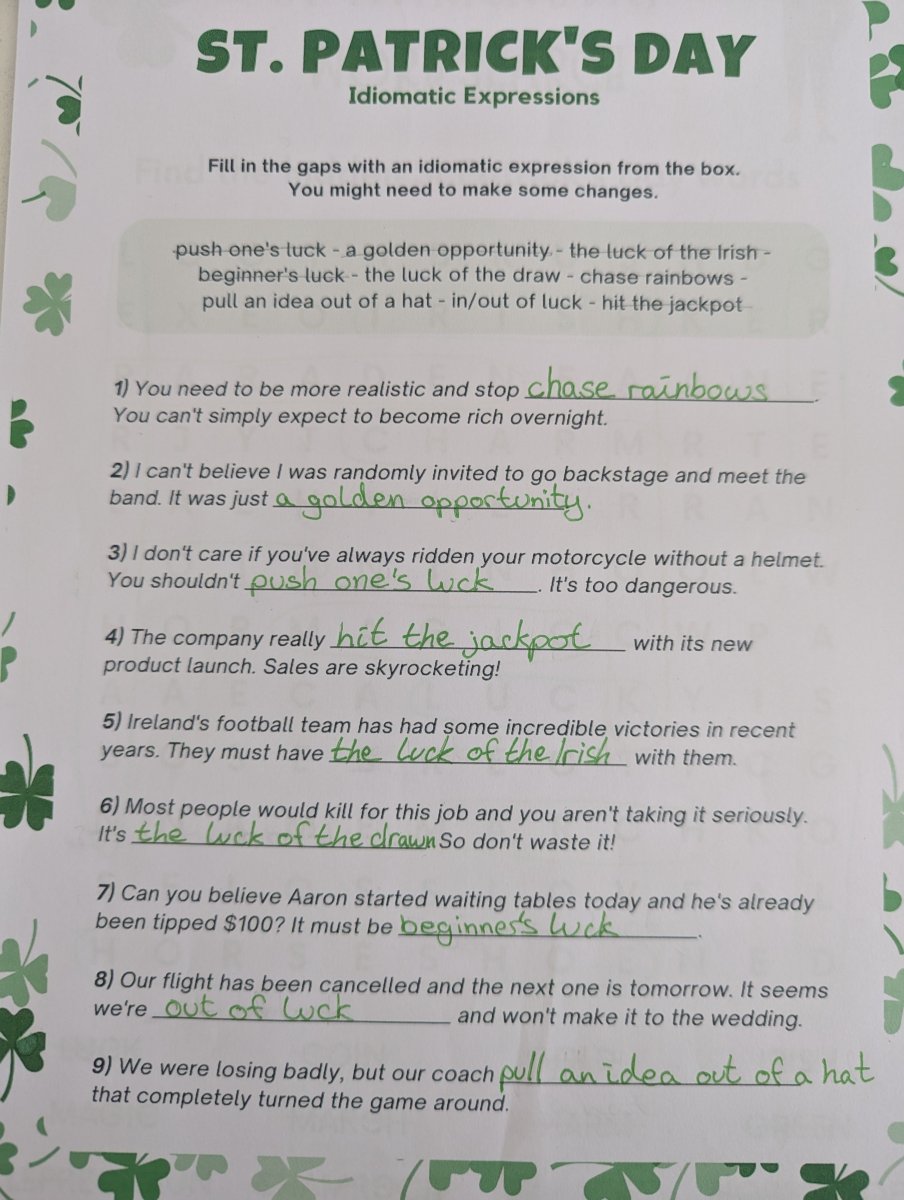 ST. PATRICK'S DAY
Idiomatic Expressions
Fill in the gaps with an idiomatic expression from the box.
You might need to make some changes.
push one's luck - a golden opportunity - the luck of the Irish -
beginner's luck - the luck of the draw - chase rainbows -
pull an idea out of a hat - in/out of luck - hit the jackpot
1) You need to be more realistic and stop chase rainbows.
You can't simply expect to become rich overnight.
2) I can't believe I was randomly invited to go backstage and meet the
band. It was just a golden opportunity.
3) I don't care if you've always ridden your motorcycle without a helmet.
You shouldn't push one's luck. It's too dangerous.
4) The company really hit the jackpot with its new
product launch. Sales are skyrocketing!
5) Ireland's football team has had some incredible victories in recent
years. They must have the luck of the Irish with them.
6) Most people would kill for this job and you aren't taking it seriously.
It's the luck of the drawn So don't waste it!
7) Can you believe Aaron started waiting tables today and he's already
been tipped $100? It must be beginner's luck.
8) Our flight has been cancelled and the next one is tomorrow. It seems
we're out of luck and won't make it to the wedding.
9) We were losing badly, but our coach pull an idea out of a hat
that completely turned the game around.